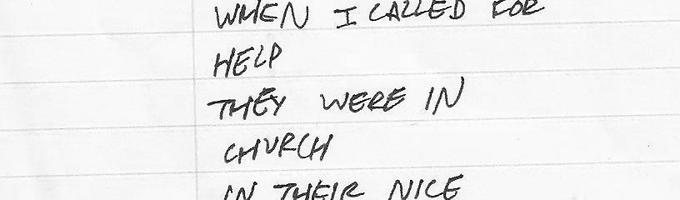 WHEN I CALLED FOR
HELP
THEY WERE IN
CHURCH
IN THEIR NICE